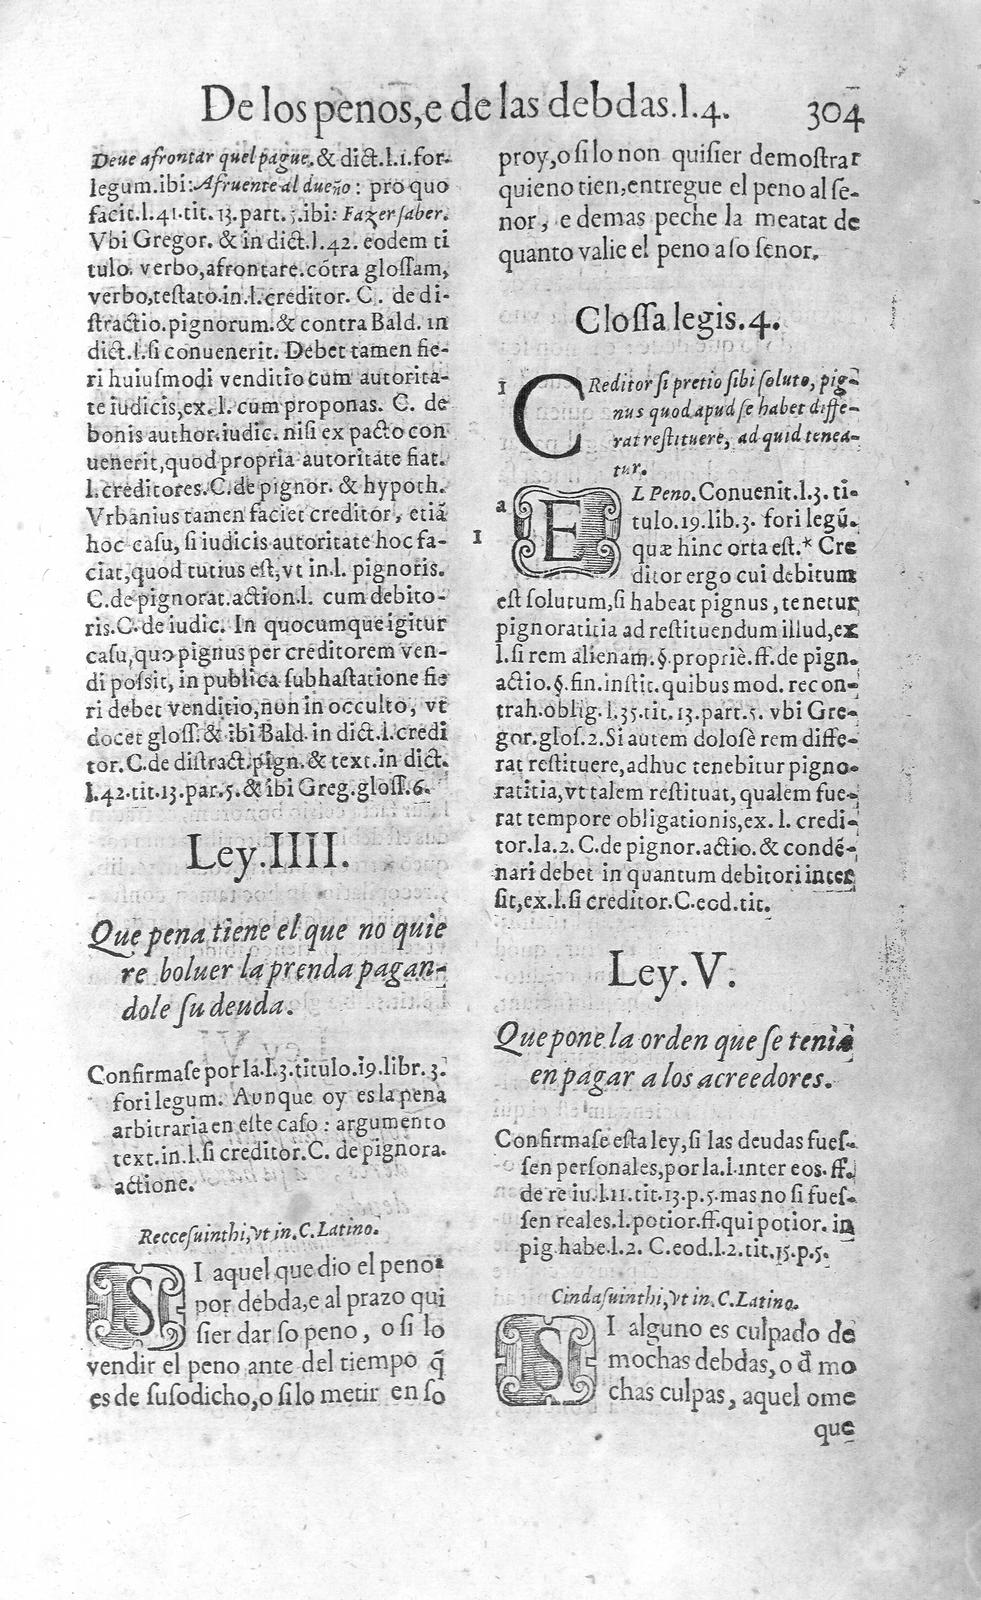 De los penos,e de las debdas.l.4. 304
Deue afrontar quel pague.& dict.l.1.for-
legum.ibi:Afruente al dueño: pro quo
facit.l.41.tit.13.part.5.ibi: Fazer saber.
Vbi Gregor. & in dict.l.42. eodem ti
tulo. verbo,afrontare.cōtra glossam,
verbo,testato.in.l.creditor. C. de di-
stractio.pignorum.& contra Bald. in
dict.l.si conuenerit. Debet tamen fie-
ri huiusmodi venditio cum autorita-
te iudicis,ex.l. cum proponas. C. de
bonis author.iudic. nisi ex pacto con
uenerit,quod propria autoritate fiat.
l.creditores.C.de pignor. & hypoth.
Vrbanius tamen faciet creditor, etiā
hoc casu, si iudicis autoritate hoc fa-
ciat,quod tutius est,vt in.l. pignoris.
C.de pignorat.action.l. cum debito-
ris.C.de iudic. In quocumque igitur
casu,quo pignus per creditorem ven-
di possit, in publica subhastatione fie
ri debet venditio,non in occulto, vt
docet gloss.& ibi Bald. in dict.l.credi
tor.C.de distract.pign.& text.in dict.
l.42.tit.13.par.5.& ibi Greg.gloss.6.
Ley.IIII.
Que pena tiene el que no quie
re boluer la prenda pagan-
dole su deuda.
Confirmase por la.l.3.titulo.19.libr.3.
fori legum. Aunque oy es la pena
arbitraria en este caso : argumento
text.in.l.si creditor.C. de pignora.
actione.
Reccesuinthi,vt in.C.Latino.
SI aquel que dio el penoª
por debda,e al prazo qui
sier dar so peno , o si lo
vendir el peno ante del tiempo q̄
es de susodicho,o si lo metir en so
proy,o si lo non quisier demostrar
quieno tien,entregue el peno al se-
nor, e demas peche la meatat de
quanto valie el peno a so senor.
Glossa legis.4.
1 CReditor si pretio sibi soluto, pig-
nus quod apud se habet diffe-
rat restituere, ad quid tenea-
tur.
a EL Peno.Conuenit.l.3. ti-
tulo.19.lib.3. fori legū.
1 quæ hinc orta est.* Cre
ditor ergo cui debitum
est solutum,si habeat pignus , tenetur
pignoratitia ad restituendum illud,ex
l.si rem alienam.§.propriè.ff.de pign.
actio.§.fin.instit.quibus mod. re con-
trah.oblig.l.35.tit.13.part.5. vbi Gre-
gor.glos.2.Si autem dolosè rem diffe-
rat restituere,adhuc tenebitur pigno-
ratitia,vt talem restituat, qualem fue-
rat tempore obligationis,ex.l. credi-
tor.la.2. C.de pignor.actio.& condē-
nari debet in quantum debitori inter
sit,ex.l.si creditor.C.eod.tit.
Ley.V.
Que pone la orden que se tenia
en pagar a los acreedores.
Confirmase esta ley,si las deudas fues-
sen personales,por la.l.inter eos.ff.
de re iu.l.11.tit.13.p.5.mas no si fues-
sen reales.l.potior.ff.qui potior. in
pig.habe.l.2. C.eod.l.2.tit.15.p.5.
Cindasuinthi,vt in.C.Latino.
SI alguno es culpado de
mochas debdas, o d̄ mo
chas culpas, aquel ome
que